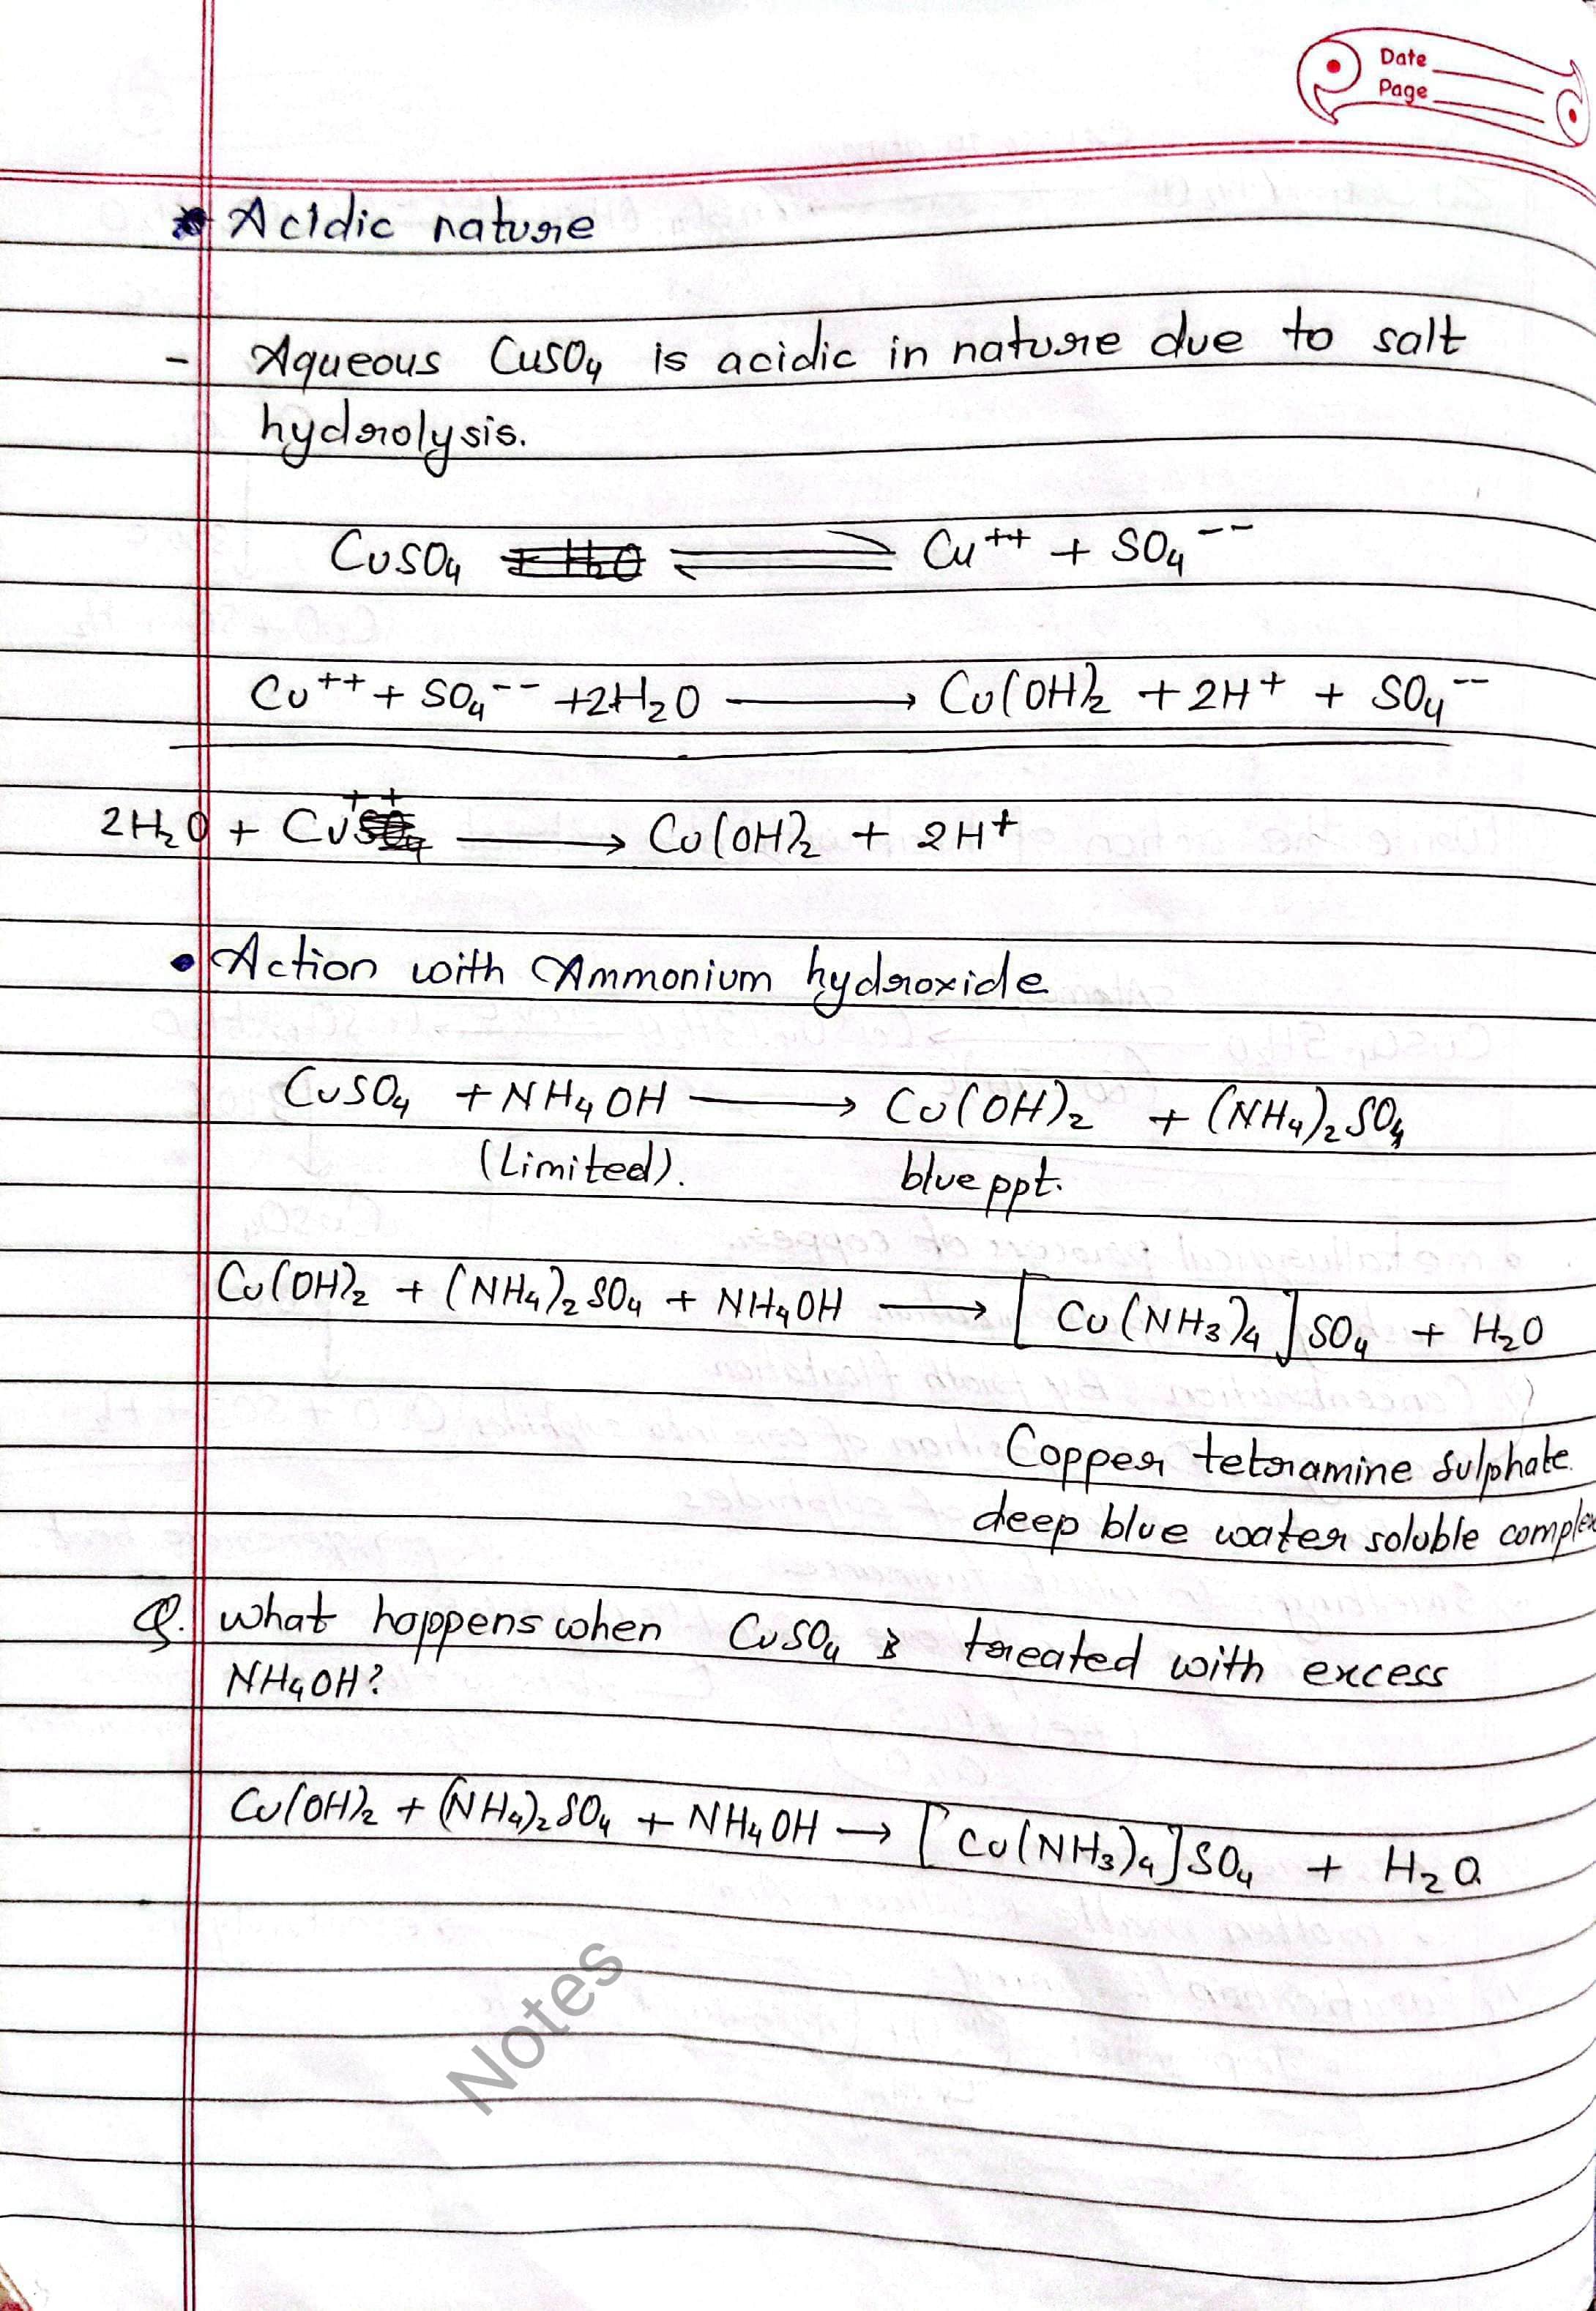 Date
Page
* Acidic nature
- Aqueous CuSO₄ is acidic in nature due to salt
hydrolysis.
CuSO₄ ⇌ Cu⁺⁺ + SO₄⁻⁻
Cu⁺⁺ + SO₄⁻⁻ +2H₂O ⟶ Cu(OH)₂ + 2H⁺ + SO₄⁻⁻
2H₂O + Cu⁺⁺ ⟶ Cu(OH)₂ + 2H⁺
• Action with Ammonium hydroxide
CuSO₄ + NH₄OH ⟶ Cu(OH)₂ + (NH₄)₂SO₄
(Limited). blue ppt.
Cu(OH)₂ + (NH₄)₂SO₄ + NH₄OH ⟶ [Cu(NH₃)₄]SO₄ + H₂O
Copper tetramine sulphate.
deep blue water soluble complex
Q. what happens when CuSO₄ is treated with excess
NH₄OH?
Cu(OH)₂ + (NH₄)₂SO₄ + NH₄OH → [Cu(NH₃)₄]SO₄ + H₂O
Notes